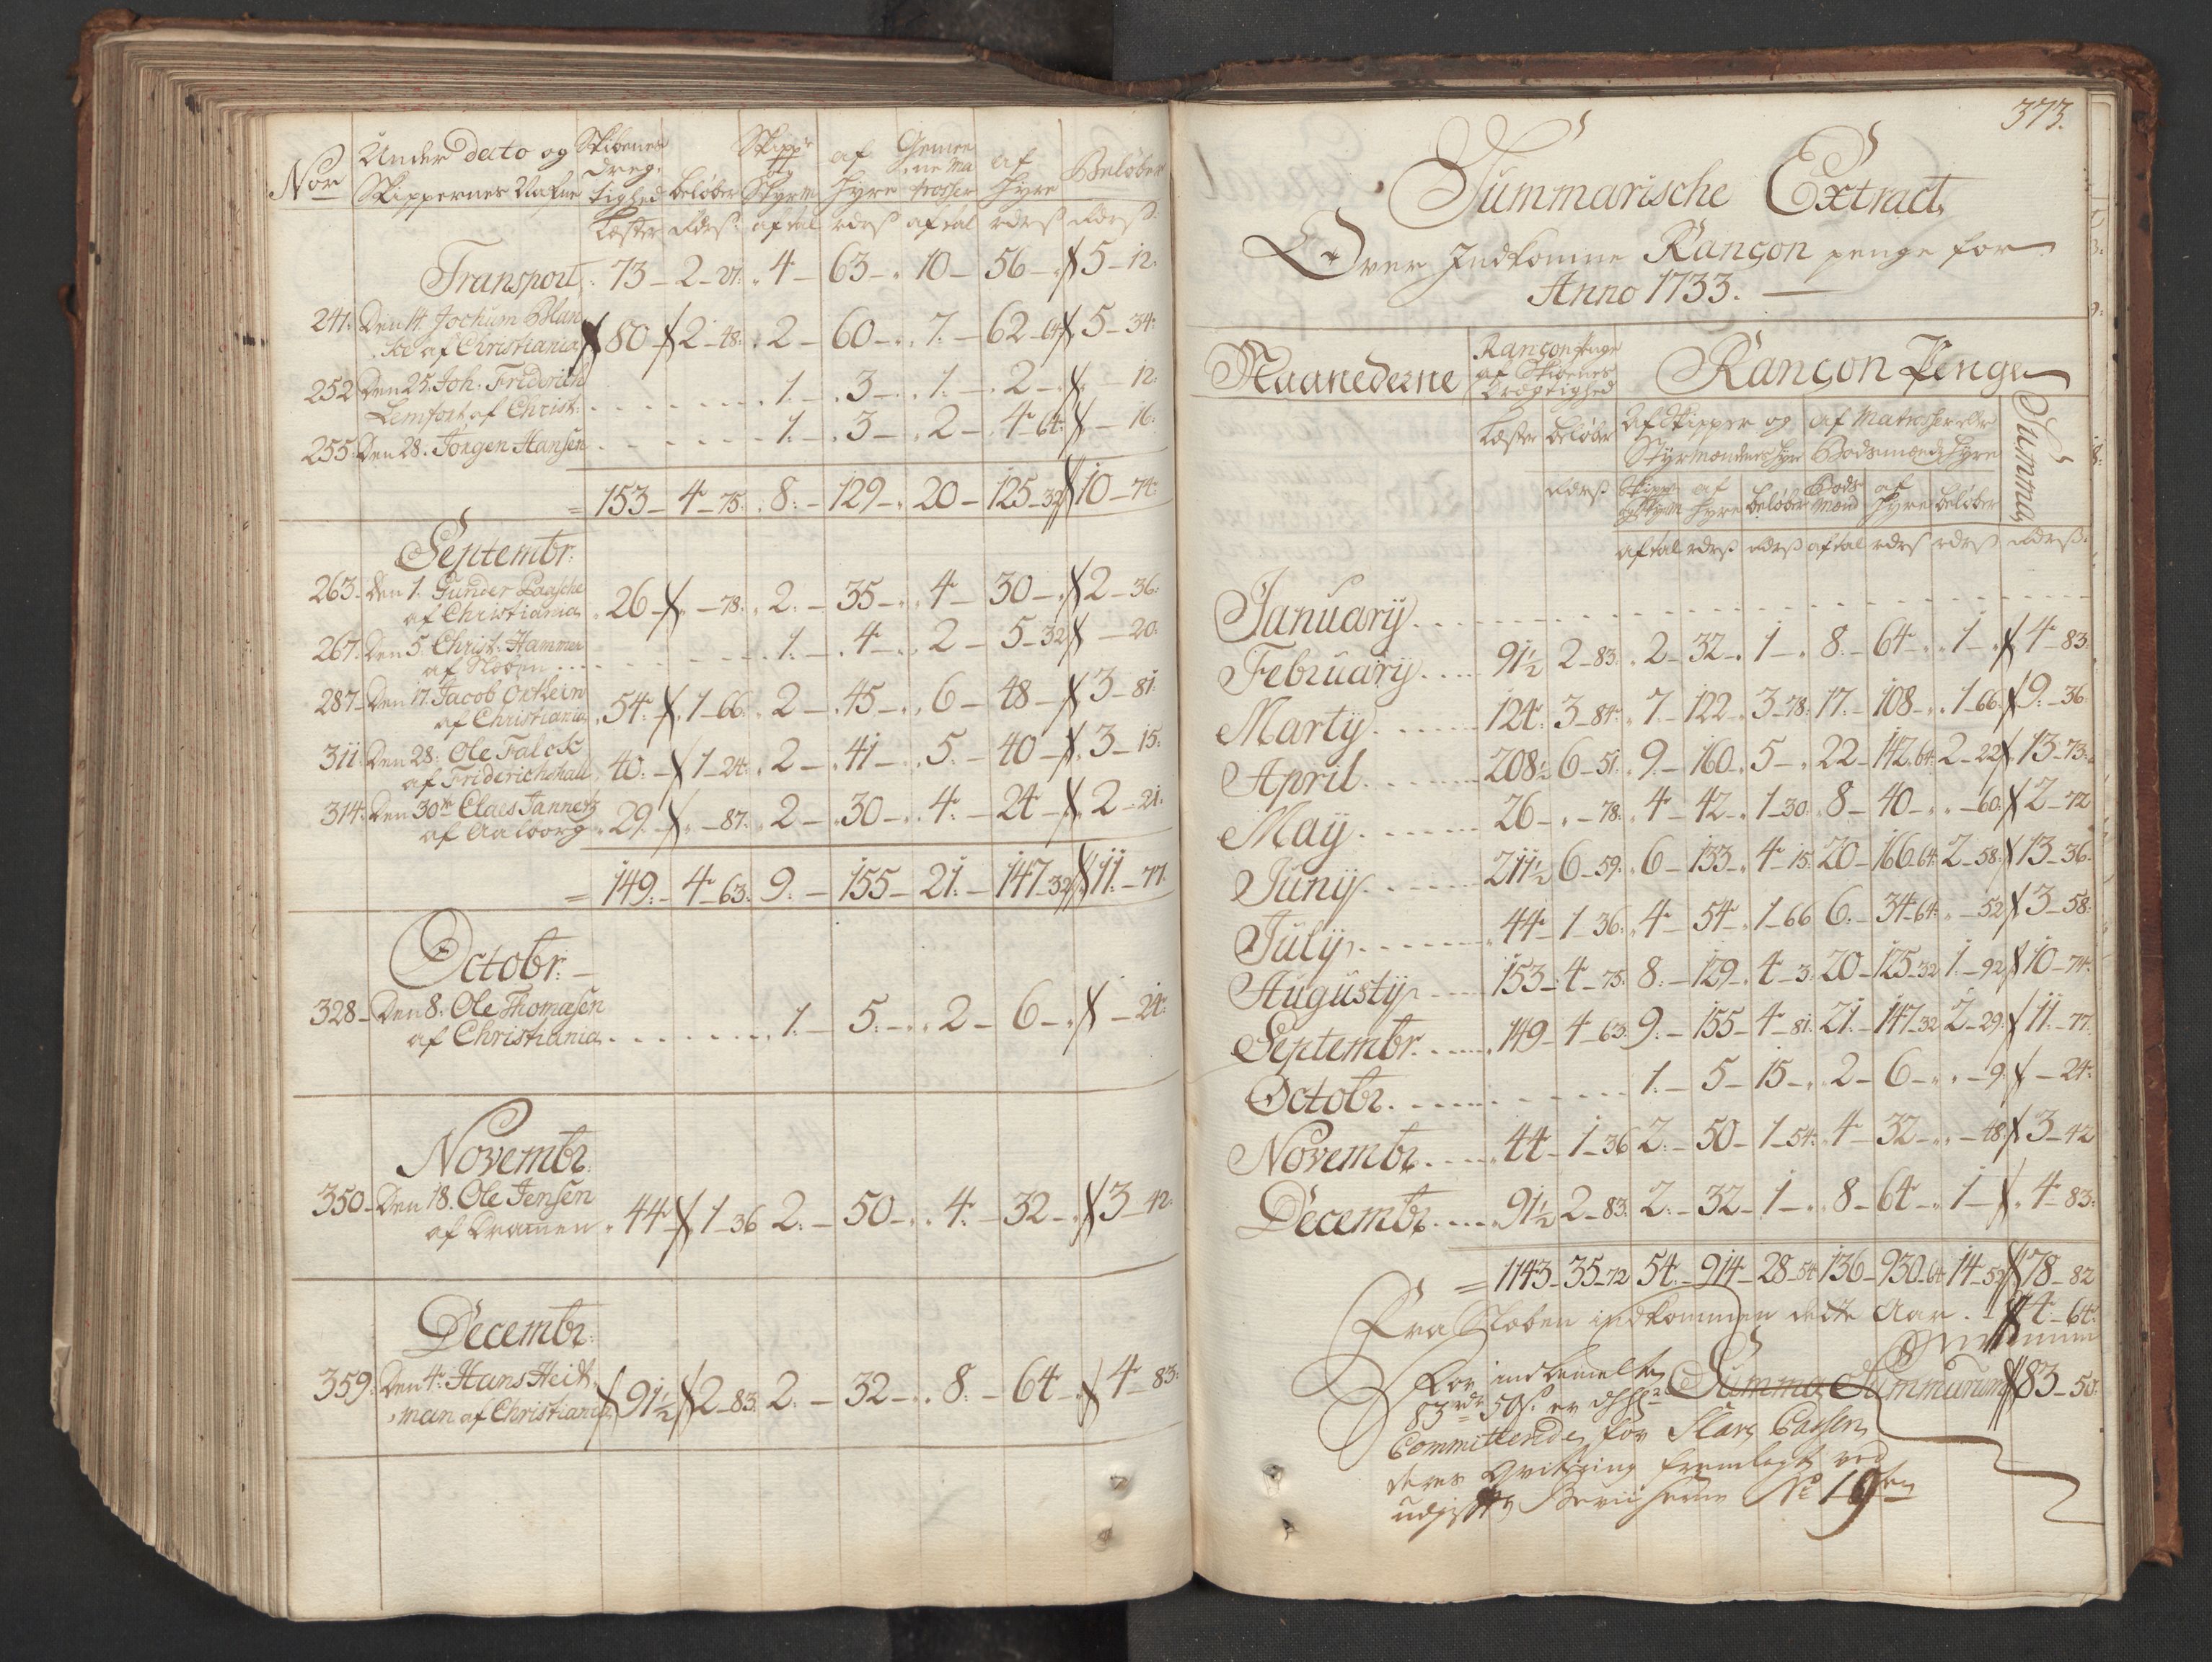 Nor
Under dato og
Skippernes Nafne
Skibenes
Dreg-
tighed
beløber
Skippr
og
Styrm
af
Hyre
Gemee
ne Ma
trosser
af
Hyre
Beløber
Læster rdrs: aftal rdrs aftal rdrs rdrs
Transport: 73 - 2 - 21: 4 - 63 - 10 - 56 - 5 - 12:
241: Den 14. Jochum Blan
ke af Christiania 80 - 2 - 48: 2 - 60 - 7: - 62 - 64 5 - 34:
252 Den 25. Joh. Friderich
Lemfort af Christ: 1: - 3 - 1: - 2 - 12:
255: Den 28. Jörgen Hansen 1: - 3 - 2 - 4 - 64: - 16:
= 153 - 4 - 75: 8: - 129 - 20 - 125 - 32 10 - 74:
Septembr:
263 - den 1. Gunder Paasche
af Christiania 26 - 78: 2: - 35 - 4 - 30 - 2 - 36:
267. Den 5. Christ: Hammer
af Sloben 1: - 4 - 2 - 5 - 32 - 20:
287 - Den 17. Jacob Ortkein
af Christiania 54: 1 - 66: 2 - 45 - 6 - 48 - 3 - 81:
311: Den 28: Ole Falck
af Friderichshald 40: - 1 - 24: 2 - 41 - 5: - 40 - 3 - 15:
314: Den 30te Claes Jannes
af Aalborg 29: - 87: 2 - 30 - 4: - 24 - 2 - 21:
= 149: - 4 - 63: 9: - 155 - 21: - 147 - 32 11: - 77.
Octobr: -
328 - Den 8: Ole Thomasen
af Christiania 1: - 5: - 2 - 6 - 24:
Novembr:
350 - Den 18. Ole Jensen
af Dramen 44 - 1 - 36 2: - 50 - 4: - 32 - 3 - 42:
Decembr:
359: Den 4: Hans Heid
man af Christiania 91½ 2 - 83: 2: - 32 - 8: - 64 - 4 - 83:
373.
Summarische Extract,
Over Indkomne Rançon penge for
Anno 1733. -
Maanederne
Rançon penge
af Skibenes
Drægtighed
Rançon Penge
Læster beløber
Af Skipper og
Styrmændens Hyre
af Matroser eller
Bodsmænds Hyre
Summa
rdrs
Skippr
og Styrm
af
Hyre
beløber
Bods
mænd
af
Hyre
beløber
aftal rdrs rdrs aftal rdrs rdrs rdrs:
Januarij
Februarij 91½ 2 - 83: 2 - 32 - 1 - 8: - 64 - 1 - 4 - 83:
Martij 124: 3 - 84: 7 - 122 - 3 - 78: 17: - 108 - 1 - 66: 9: - 36
April 208½ 6 - 51: 9: - 160 - 5 - 22 - 142 64: 2 - 22 13 - 73:
Maij 26 - 78: 4 - 42 - 1 - 30: 8 - 40 - 60: 2 - 72
Junij 211½ 6 - 59: 6 - 133 - 4 - 15: 20 - 166 64: 2 - 58: 13 - 36
Julij 44 - 1 - 36: 4 - 54 - 1 - 66 6: - 34 - 64: - 52 3 - 58:
Augustij 153 - 4 - 75: 8: - 129 - 4 - 3: 20 - 125 - 32 1: - 92 10 - 74:
Septembr 149 - 4 - 63: 9: - 155 - 4 - 81: 21: - 147 - 32 2 - 29: 11: - 77.
Octobr. 1: - 5 - 15 - 2 - 6 - 9: - 24:
Novembr. 44 - 1 - 36 2: - 50 - 1 - 54: 4 - 32 - 48 3 - 42
Decembr. 91½ 2 - 83: 2: - 32 - 1 - 8 - 64 - 1 - 4 - 83:
= 1143 - 35 - 72 54: - 914 - 28 - 54 136 - 930 - 64 14 - 52 78 - 82
Fra Sloben indkommen dette Aar. 4 - 64:
Summa Summarum 83 - 50:
For indbemelte
83 rdr 50 s. er
Committerede for Slave Cassen
deres Qvitering fremlagt ved
udgifts Beviiserne No 19